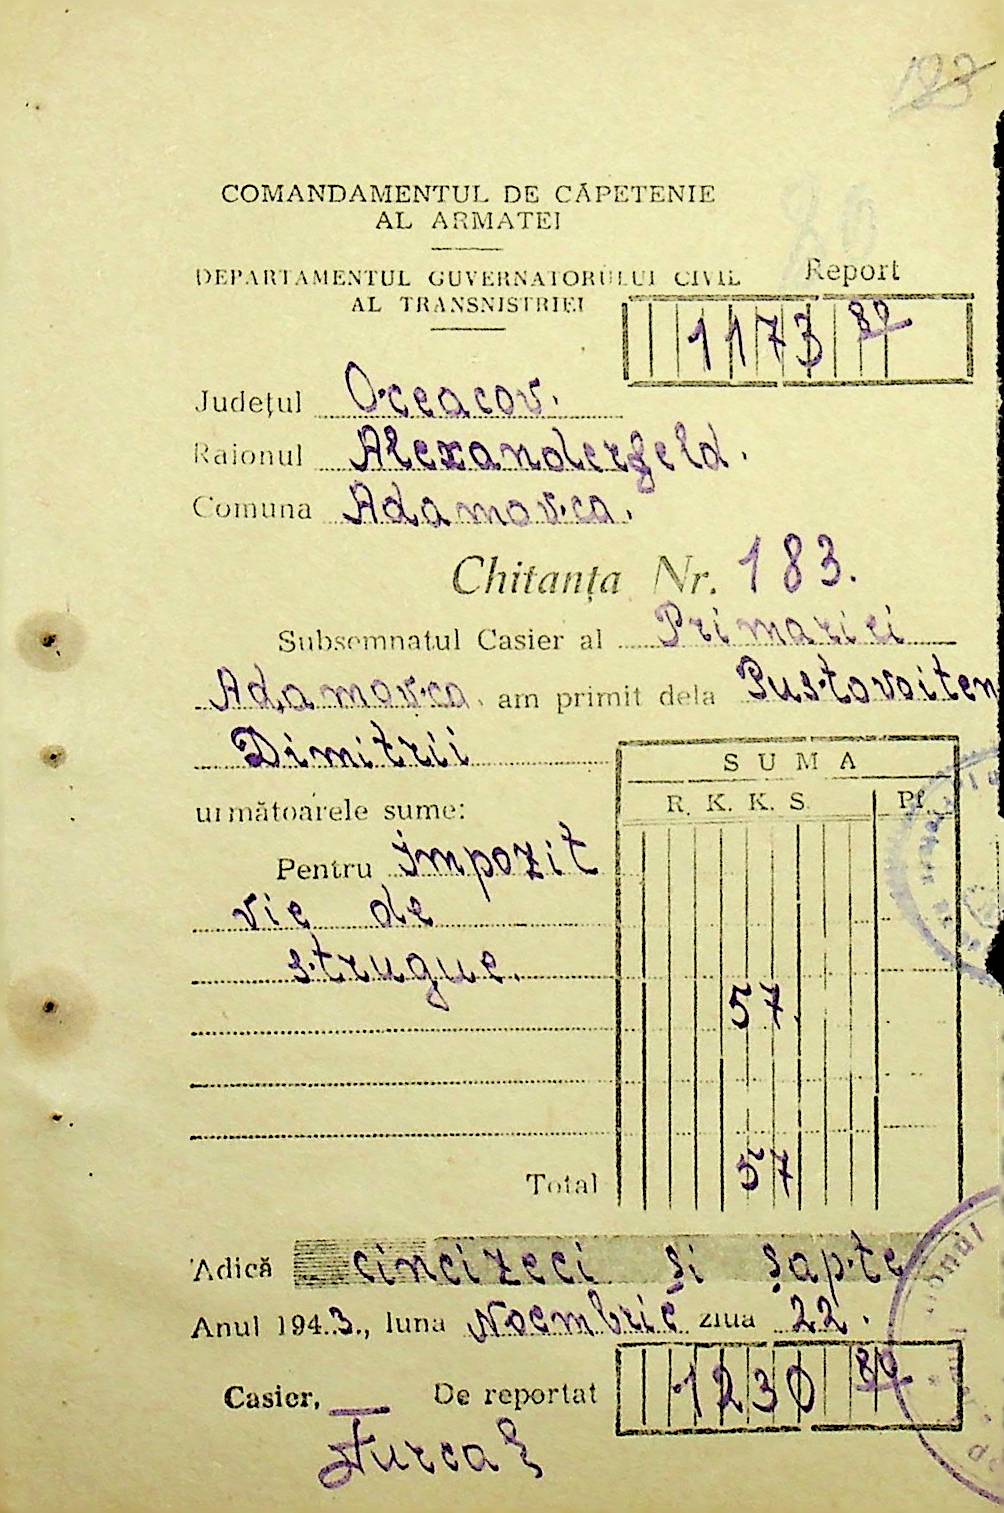 183
COMANDAMENTUL DE CĂPETENIE
AL ARMATEI
DEPARTAMENTUL GUVERNATORULUI CIVIL
AL TRANSNISTRIEI
Report
1173 80
Județul Oceacov.
Raionul Alexanderfeld.
Comuna Adamovca.
Chitanța Nr. 183.
Subsemnatul Casier al Primariei
Adamovca. am primit dela Pustovoiten
Dimitrii
SUMA
următoarele sume:
R. K. K. S. Pf.
Pentru impozit
vie de
strugue.
57.
Total 57
Adică cincizeci și șapte
Anul 1943., luna Noembrie ziua 22.
Casier, De reportat 1230 80
Țurca